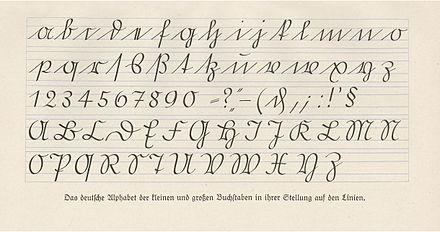 a b c d e f g h i j k l m n o
p q r ſ s ß t tz ŭ v w x y z
1 2 3 4 5 6 7 8 9 0 =?"–( , ; : ! ' §
A B C D E F G H I J K L M N
O P Q R S T U V W X Y Z
Das deutſche Alphabet der kleinen und großen Buchſtaben in ihrer Stellung auf den Linien.